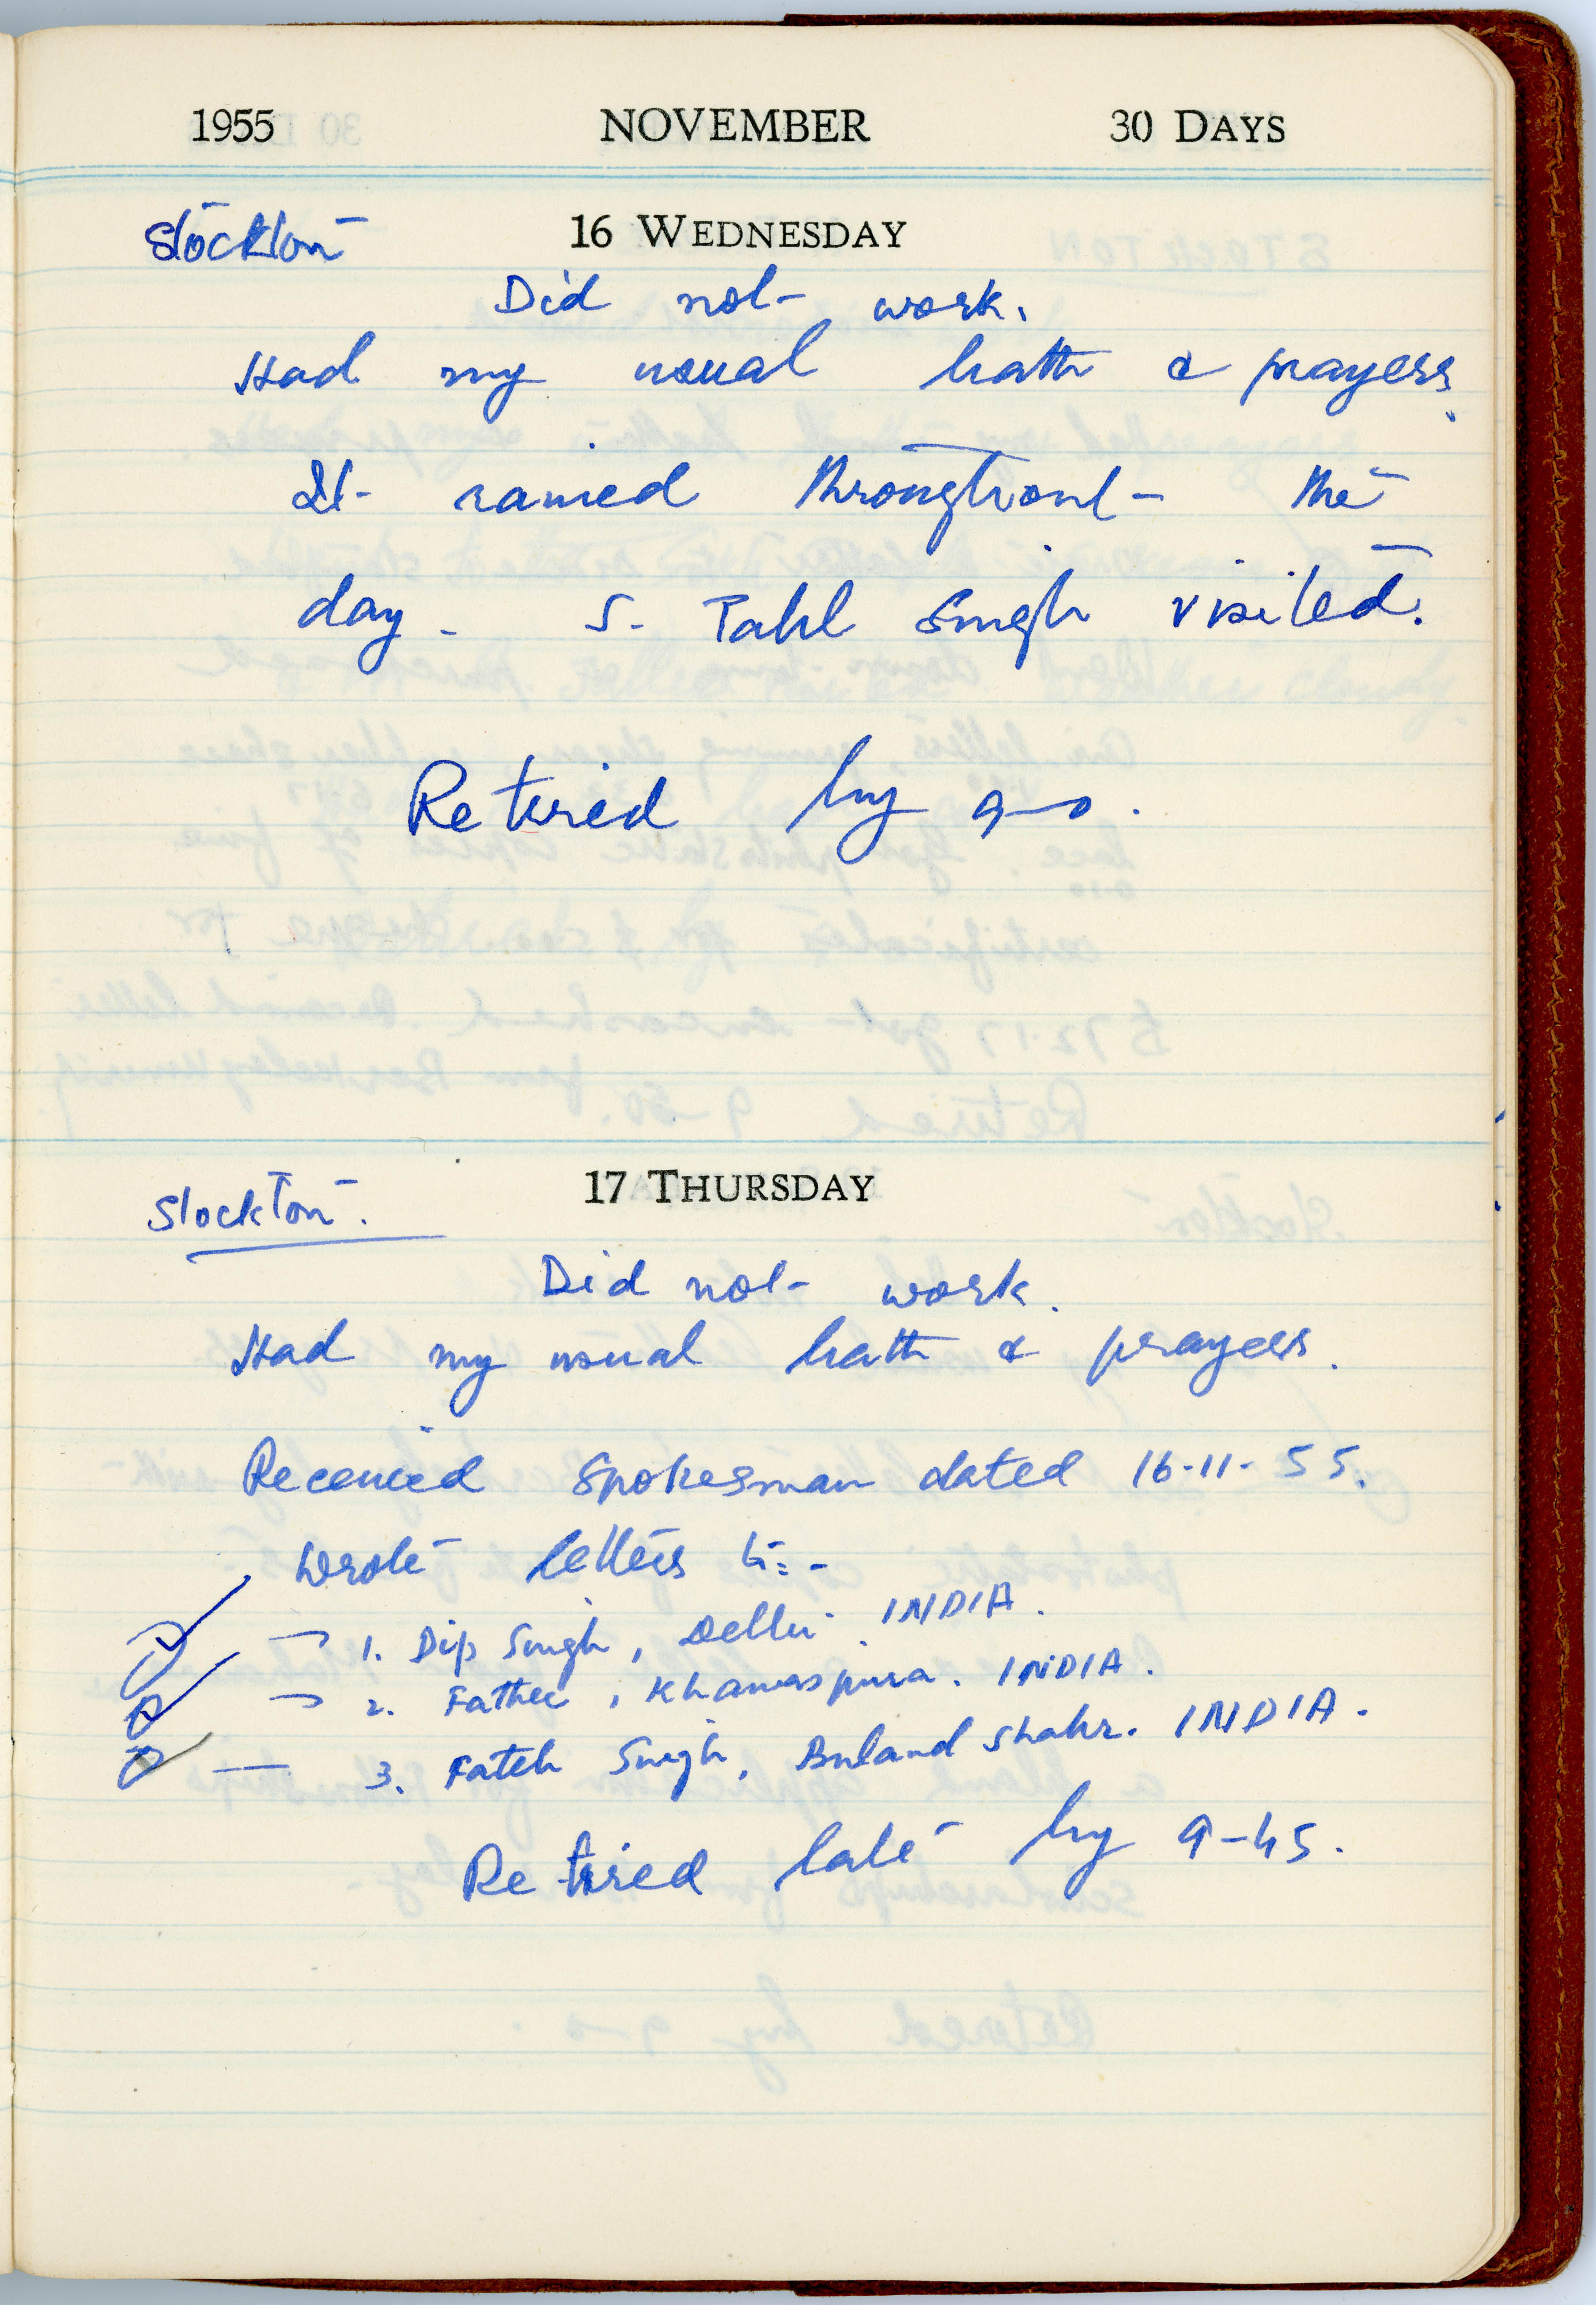 1955 NOVEMBER 30 DAYS
Stockton 16 WEDNESDAY
Did not work.
Had my usual bath & prayers.
It rained throughout the
day. S. Tahl Singh visited.
Retired by 9-0.
Stockton. 17 THURSDAY
Did not work.
Had my usual bath & prayers.
Received Spokesman dated 16-11-55.
Wrote letters to:-
1. Dip Singh, Delhi. INDIA.
2. Father, Khawaspura. INDIA.
3. Fateh Singh, Buland Shahr. INDIA.
Retired late by 9-45.